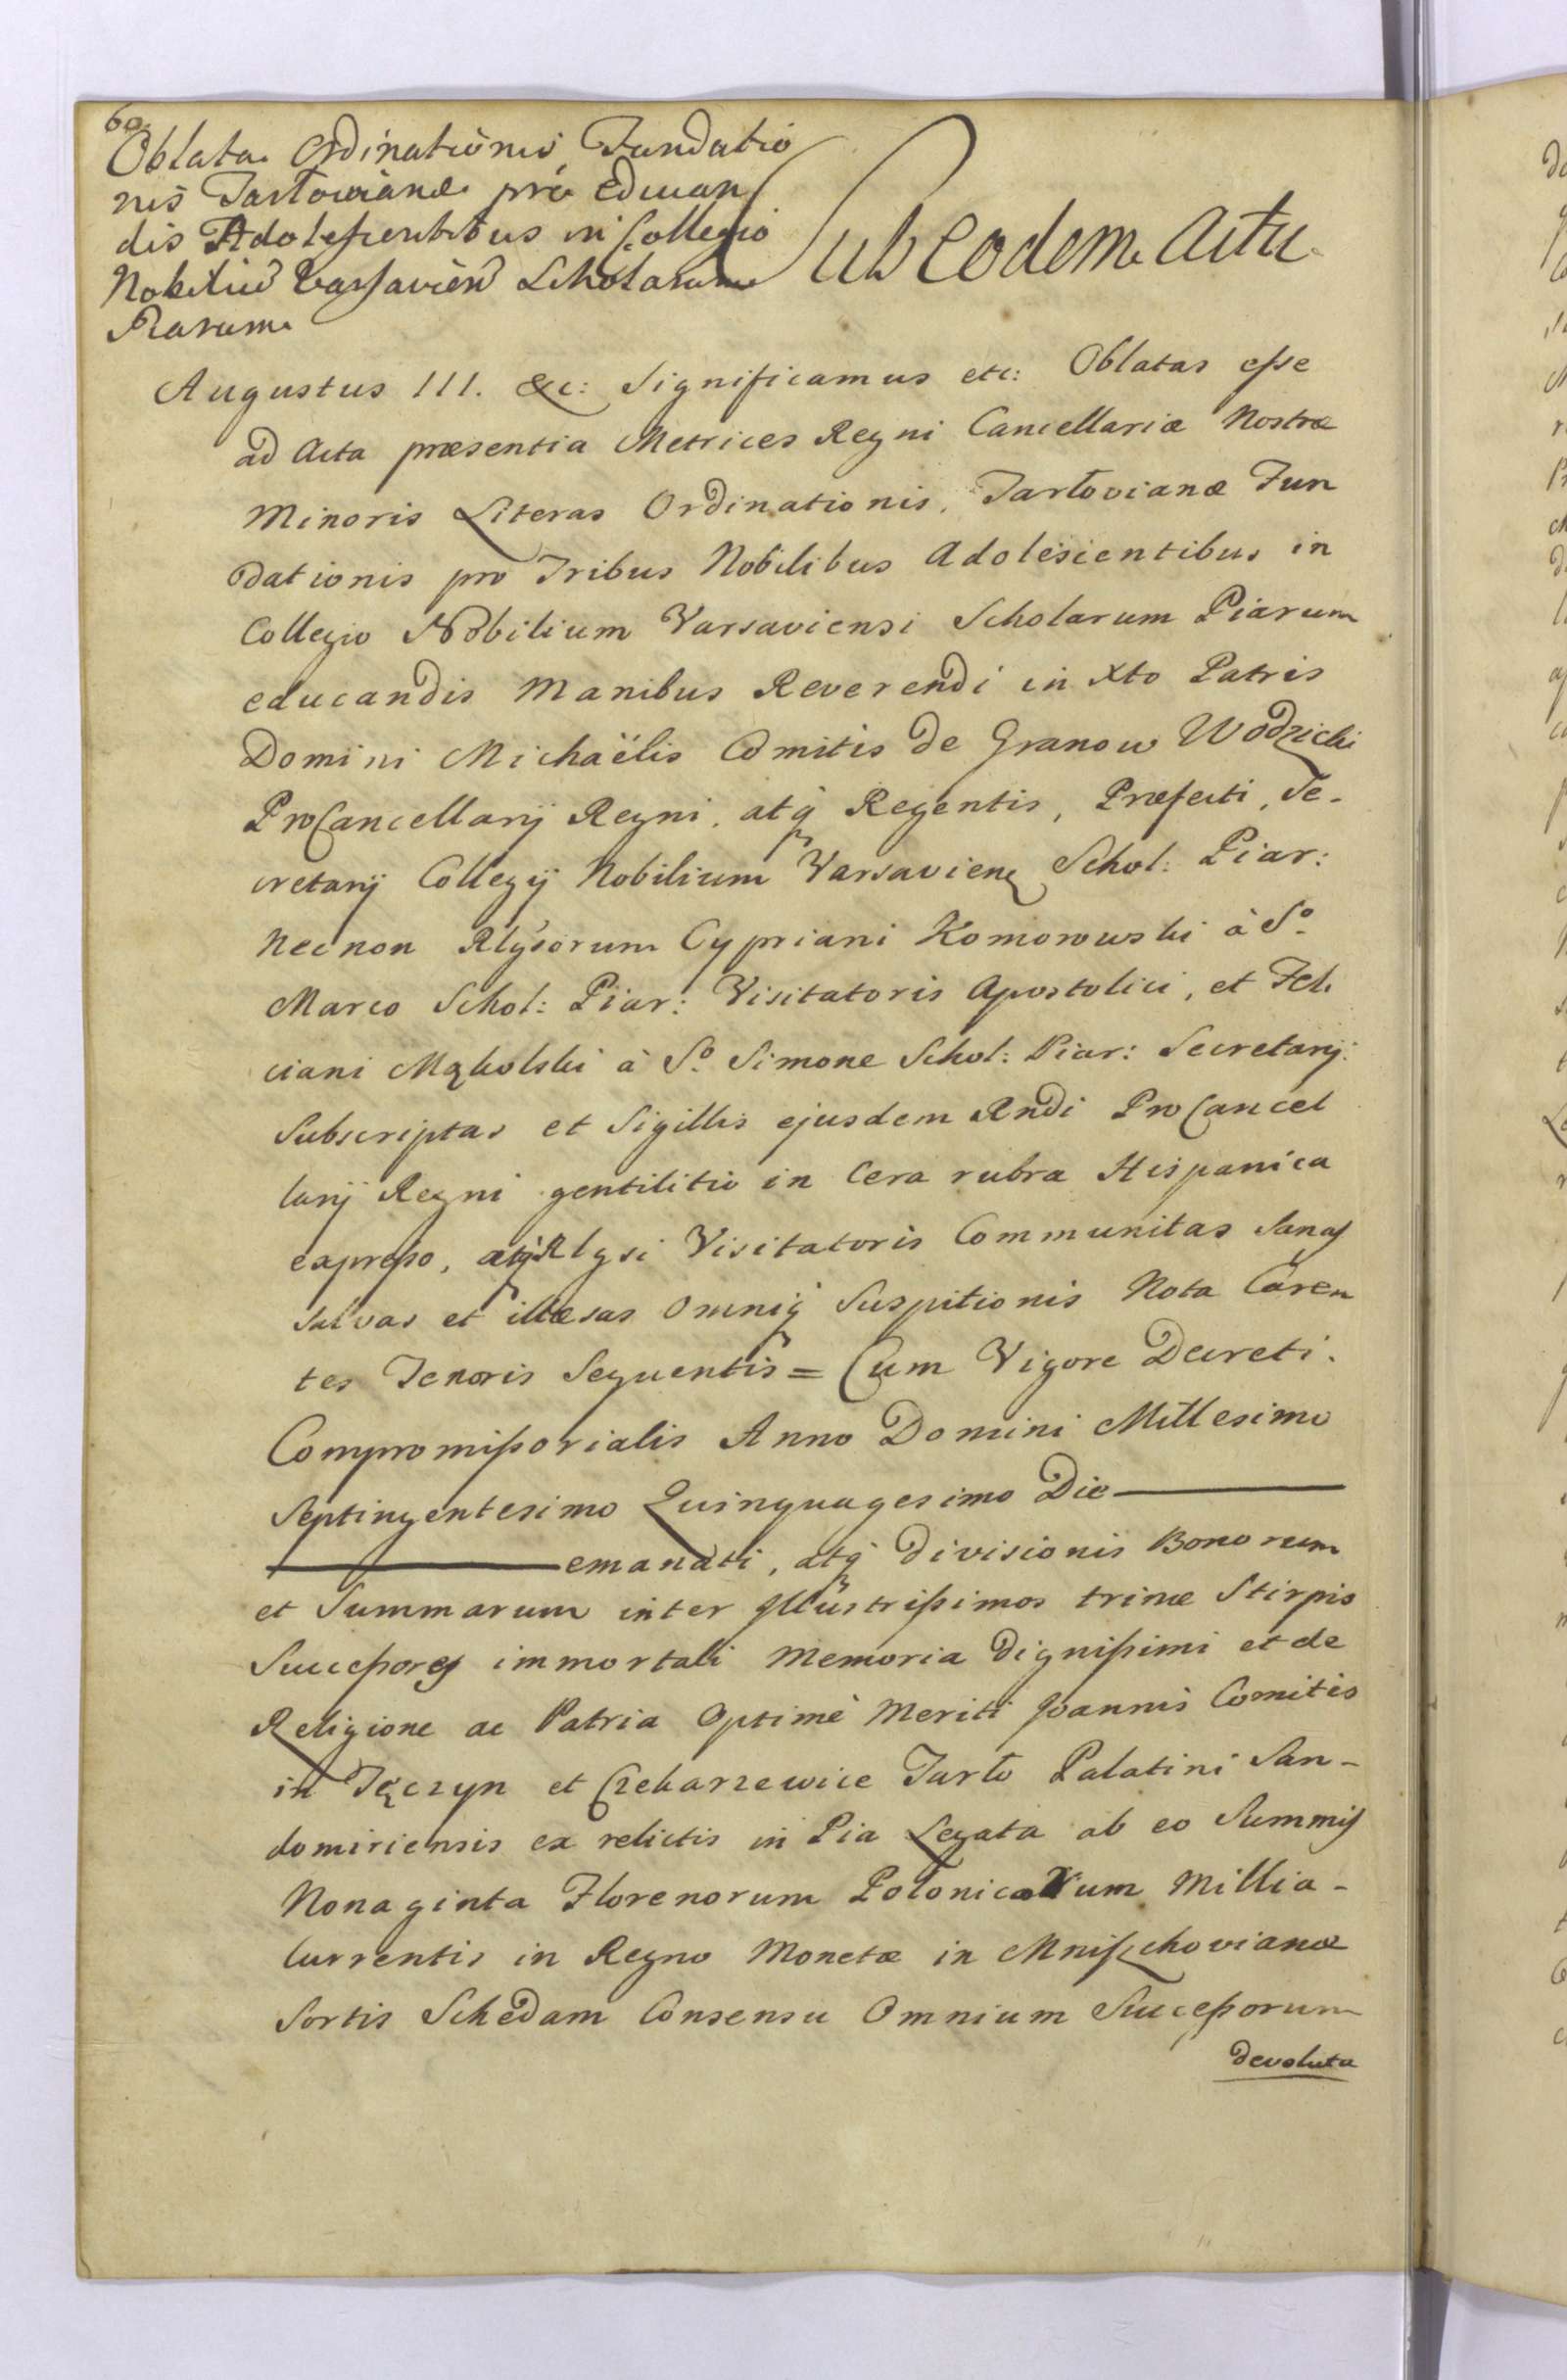 60.
Oblata Ordinationis Fundatio
nis Tarłowianæ pro Educan
dis Adolescentibus in Collegio
Nobiliũ Varsavien̄ Scholarum
Piarum
Sub eodem Actu
Augustus III. &c: Significamus etc: Oblatas esse
ad Acta præsentia Metrices Regni Cancellariæ Nostræ
Minoris Literas Ordinationis, Tarłovianæ Fun
dationis pro Tribus Nobilibus Adolescientibus in
Collegio Nobilium Varsaviensi Scholarum Piarum
educandis Manibus Reverendi in Xto Patris
Domini Michaëlis Comitis de Granow Wodzicki
ProCancellarij Regni, atq́ Regentis, Præfecti, Se-
cretarij Collegij Nobilium Varsavien Schol: Piar:
Necnon Rlgsorum Cypriani Komorowski à So
Marco Schol: Piar: Visitatoris Apostolici, et Feli
ciani Mąkolski à So Simone Schol: Piar: Secretarij:
Subscriptas et Sigillis ejusdem Rndi ProCancel
larij Regni gentilitio in Cera rubra Hispanica
expresso, atq́ Rlgsi Visitatoris Communitas Sanas
Salvas et illæsas Omniq́ Suspitionis Nota Caren
tes Tenoris Sequentis = Cum Vigore Decreti
Compromissorialis Anno Domini Millesimo
Septingentesimo Quinquagesimo Die ———
——— emanati, atq́ divisionis Bonorum
et Summarum inter Illustrissimos trinæ Stirpis
Successores immortali Memoria Dignissimi et de
Religione ac Patria Optimè Meriti Joannis Comitis
in Tęczyn et Czekarzewice Tarło Palatini San-
domiriensis ex relictis in Pia Legata ab eo Summis
Nonaginta Florenorum Polonicarum Millia-
Currentis in Regno Monetæ in Mniszchovianæ
Sortis Schedam Consensu Omnium Successorum
devoluta